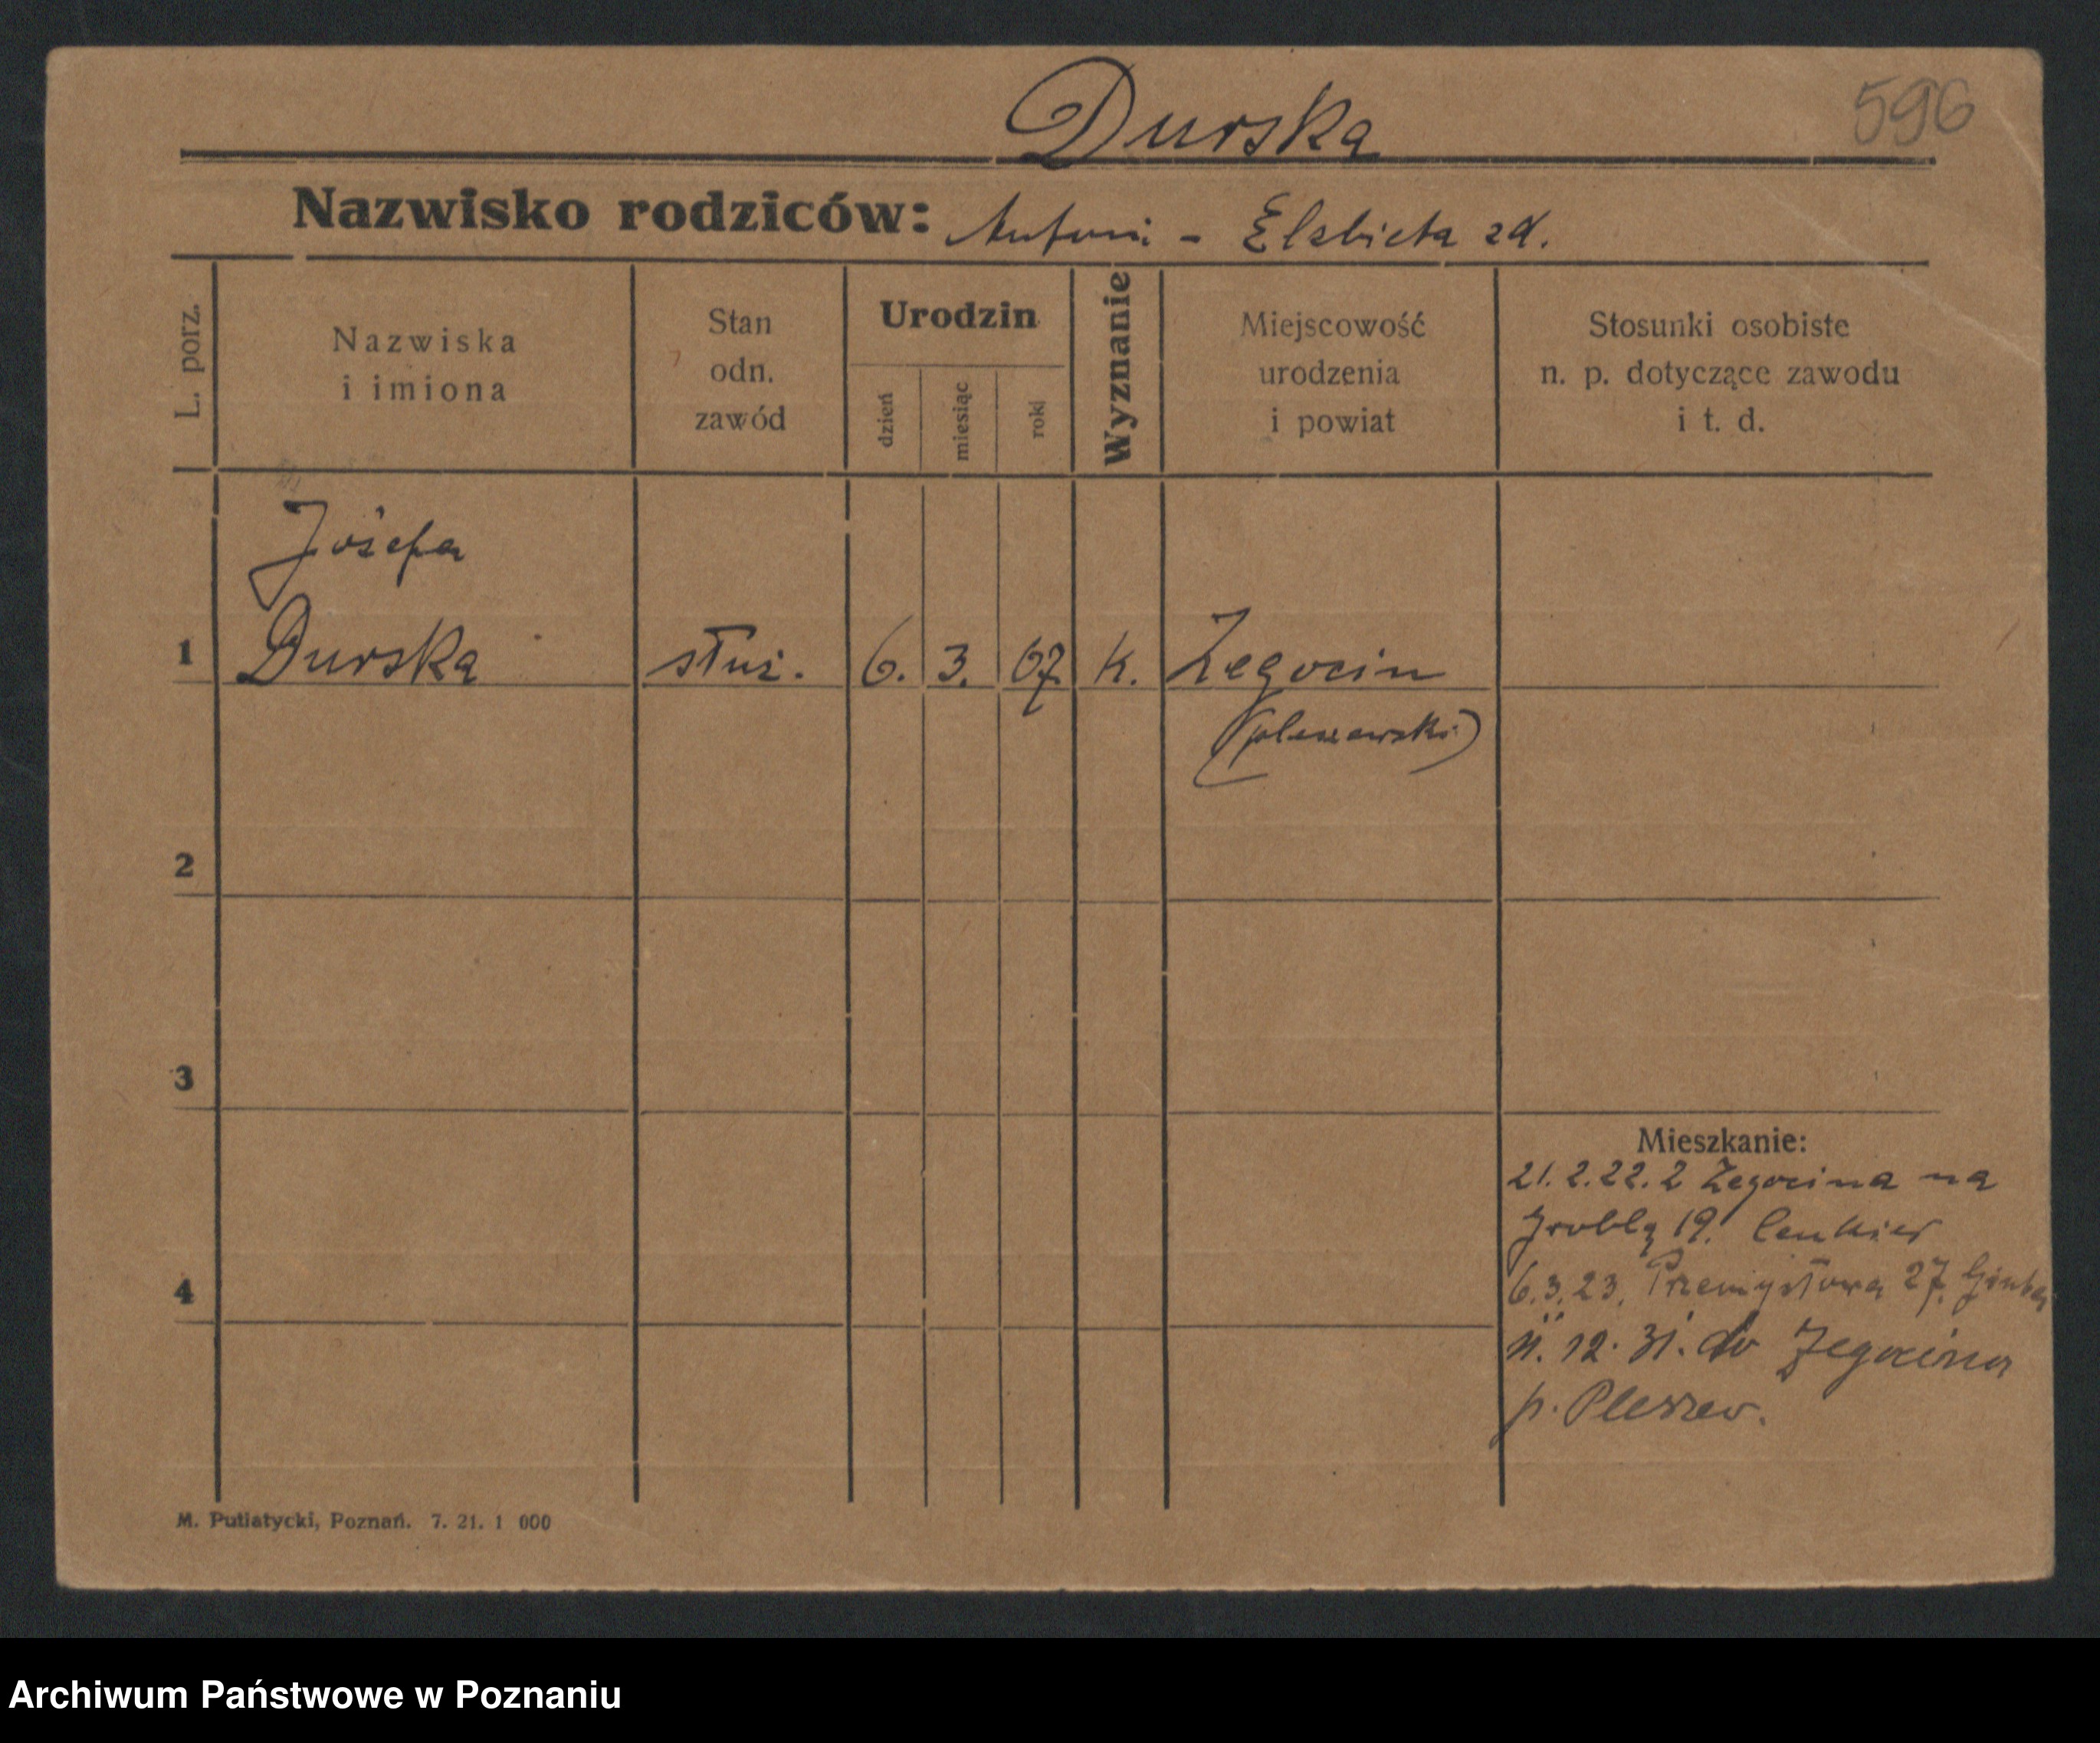 Durska
596
Nazwisko rodziców: Antoni - Elżbieta zd.
L. porz.
Nazwiska
i imiona
Stan
odn.
zawód
Urodzin
dzień
miesiąc
rok
Wyznanie
Miejscowość
urodzenia
i powiat
Stosunki osobiste
n. p. dotyczące zawodu
i t. d.
Józefa
1 Durska służ. 6. 3. 07. k. Żegocin
(pleszewski)
2
3
Mieszkanie:
21. 2. 22. z Żegocina na
Groblą 19.
4
6.3.23. Przemysłowa 27.
11. 12. 31. do Żegocina
p. Pleszew.
M. Putiatycki, Poznań. 7. 21. 1 000
Archiwum Państwowe w Poznaniu